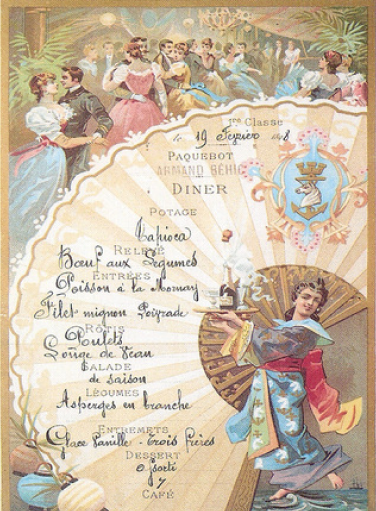 1re Classe
le 19 Février 8
PAQUEBOT
ARMAND BÉHIC
DINER
POTAGE
Tapioca
RELEVÉ
Bœuf aux Légumes
ENTRÉES
Poisson à la Mornay
Filet mignon Poivrade
RÔTIS
Poulets
Longe de Veau
SALADE
de saison
LÉGUMES
Asperges en branche
ENTREMETS
Glace Vanille - Trois Frères
DESSERT
Assorti
CAFÉ